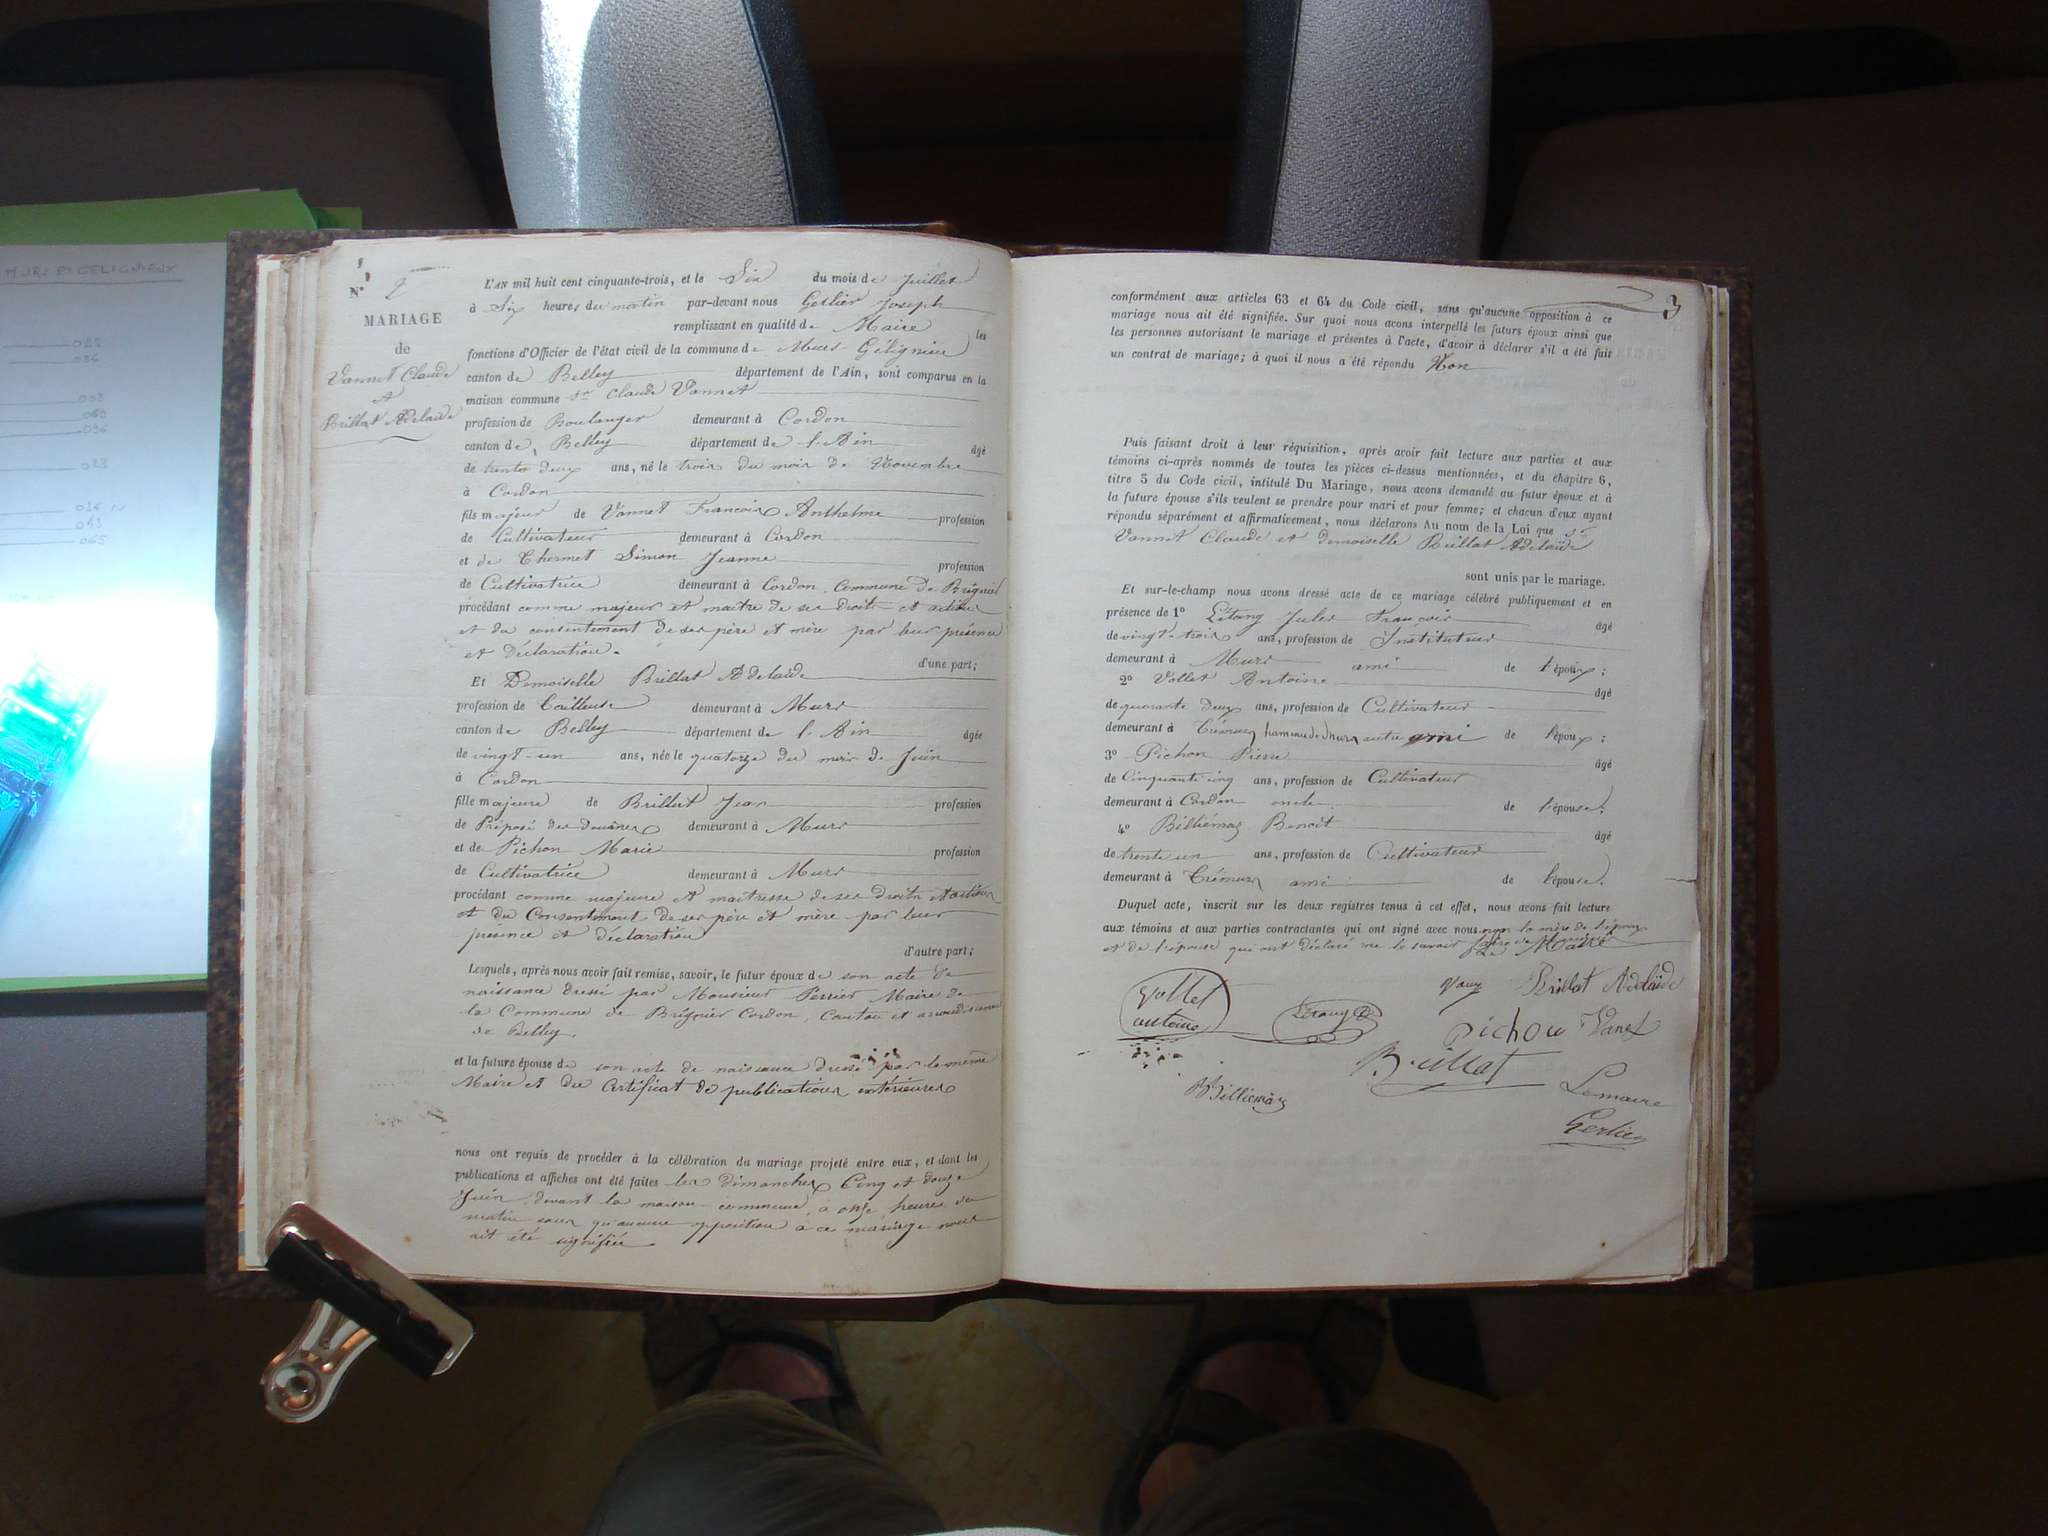 MURS ET GELIGNIEUX
N.º 2
MARIAGE
de
Vannet Claude
et
Brillat Adelaïde
L'AN mil huit cent cinquante-trois, et le Six du mois de Juillet
à Six heures du matin par-devant nous Gerlier Joseph
remplissant en qualité de Maire les
fonctions d'Officier de l'état civil de la commune de Murs-Gélignieu
canton de Belley département de l'Ain, sont comparus en la
maison commune Sr Claude Vannet
profession de Boulanger demeurant à Cordon
canton de Belley département de l'Ain âgé
de trente deux ans, né le trois du mois de Novembre
à Cordon
fils majeur de Vannet François Anthelme profession
de Cultivateur demeurant à Cordon
et de Thermet Simon Jeanne profession
de Cultivatrice demeurant à Cordon Commune de Brégnier
procédant comme majeur et maitre de ses droits et actions
et du consentement de ses père et mère par leur présence
et déclaration.
d'une part;
Et Demoiselle Brillat Adelaïde
profession de Tailleuse demeurant à Murs
canton de Belley département de l'Ain âgée
de vingt-un ans, née le quatorze du mois de Juin
à Cordon
fille majeure de Brillat Jean profession
de Préposé des Douânes demeurant à Murs
et de Pichon Marie profession
de Cultivatrice demeurant à Murs
procédant comme majeure et maitresse de ses droits et actions
et du Consentement de ses père et mère par leur
présence et déclaration
d'autre part;
Lesquels, après nous avoir fait remise, savoir, le futur époux de son acte de
naissance dressé par Monsieur Perrier Maire de
la Commune de Brégnier Cordon, Canton et arrondissement
de Belley.
et la future épouse de son acte de naissance dressé par le même
Maire et du Certificat de publications extérieures
nous ont requis de procéder à la célébration du mariage projeté entre eux, et dont les
publications et affiches ont été faites les dimanches Cinq et douze
Juin devant la maison commune, à onze heures du
matin sans qu'aucune opposition à ce mariage nous
ait été signifiée
3
conformément aux articles 63 et 64 du Code civil, sans qu'aucune opposition à ce
mariage nous ait été signifiée. Sur quoi nous avons interpellé les futurs époux ainsi que
les personnes autorisant le mariage et présentes à l'acte, d'avoir à déclarer s'il a été fait
un contrat de mariage; à quoi il nous a été répondu Non
Puis faisant droit à leur réquisition, après avoir fait lecture aux parties et aux
témoins ci-après nommés de toutes les pièces ci-dessus mentionnées, et du chapitre 6,
titre 5 du Code civil, intitulé Du Mariage, nous avons demandé au futur époux et à
la future épouse s'ils veulent se prendre pour mari et pour femme; et chacun d'eux ayant
répondu séparément et affirmativement, nous déclarons Au nom de la Loi que Sr
Vannet Claude et demoiselle Brillat Adelaïde
sont unis par le mariage.
Et sur-le-champ nous avons dressé acte de ce mariage célébré publiquement et en
présence de 1º Létang Jules François âgé
de vingt-trois ans, profession de Instituteur
demeurant à Murs ami de l'époux;
2º Vollet Antoine âgé
de quarante deux ans, profession de Cultivateur
demeurant à Trémurs hameau de Murs autre ami de l'époux;
3º Pichon Pierre âgé
de Cinquante cinq ans, profession de Cultivateur
demeurant à Cordon oncle de l'épouse;
4º Billiémaz Benoît âgé
de trente un ans, profession de Cultivateur
demeurant à Trémurs ami de l'épouse.
Duquel acte, inscrit sur les deux registres tenus à cet effet, nous avons fait lecture
aux témoins et aux parties contractantes qui ont signé avec nous, non la mère de l'époux
et de l'épouse qui ont déclaré ne le savoir faire
Vollet
antoine
Létang
Brillat Adelaïde
Pichon
Vanet
Brillat
BBilliemaz
Le maire
Gerlier